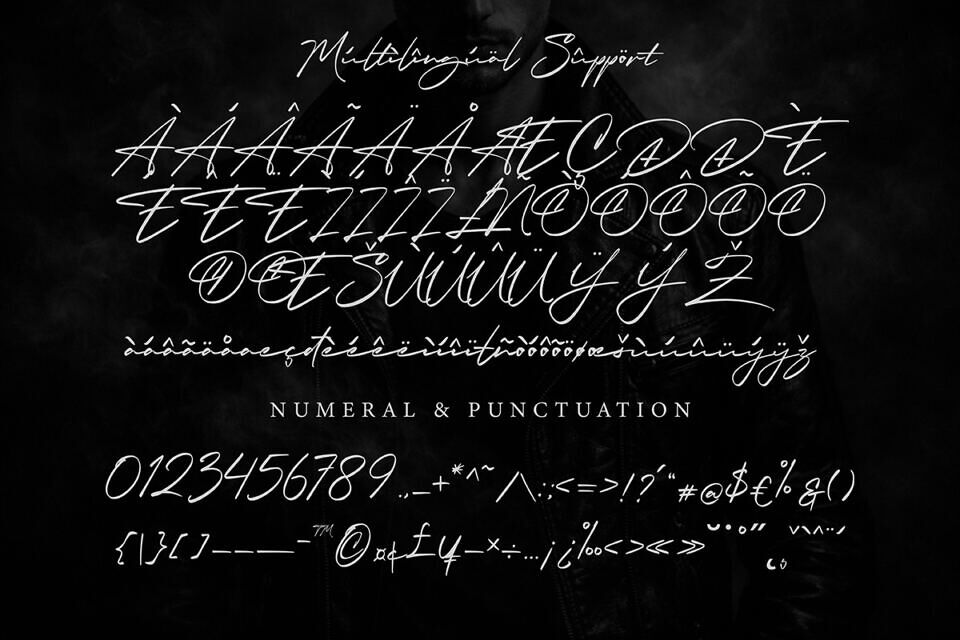 Múltîlîngúäl Sûppört
ÀÁÂÃÄÅÆÇÐĐÈ
ÉÊËÌÍÎÏŁÑÒÓÔÕÖ
ØŒŠÙÚÛÜŸÝŽ
àáâãäåæçđèéêëìíîïłñòóôõöøœšùúûüýÿž
NUMERAL & PUNCTUATION
0123456789.,_+*^~/\:;<=>!?'"#@$€%&()
{|}[]—–™©¤¢£¥-×÷…¡¿‰<>«»